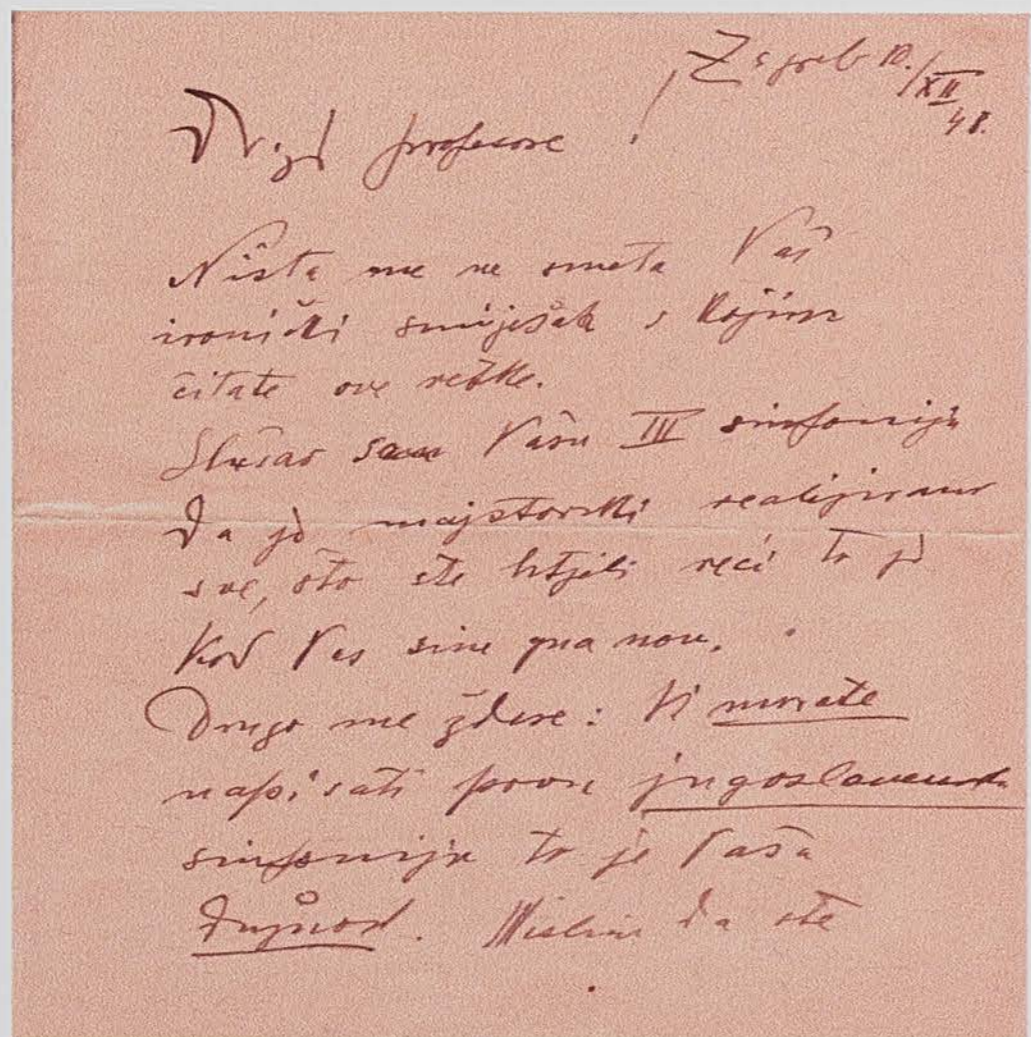 Zagreb 10./XII
48.
Dragi profesore!
Ništa me ne smeta Vaš
ironički smiješak s kojim
čitate ove retke.
Slušao sam Vašu III sinfoniju
Da je majstorski realizirano
sve, što ste htjeli reći to je
kod Vas sine qua non.
Drugo me ždere: Vi morate
napisati prvu jugoslavensku
sinfoniju to je Vaša
dužnost. Mislim da ste